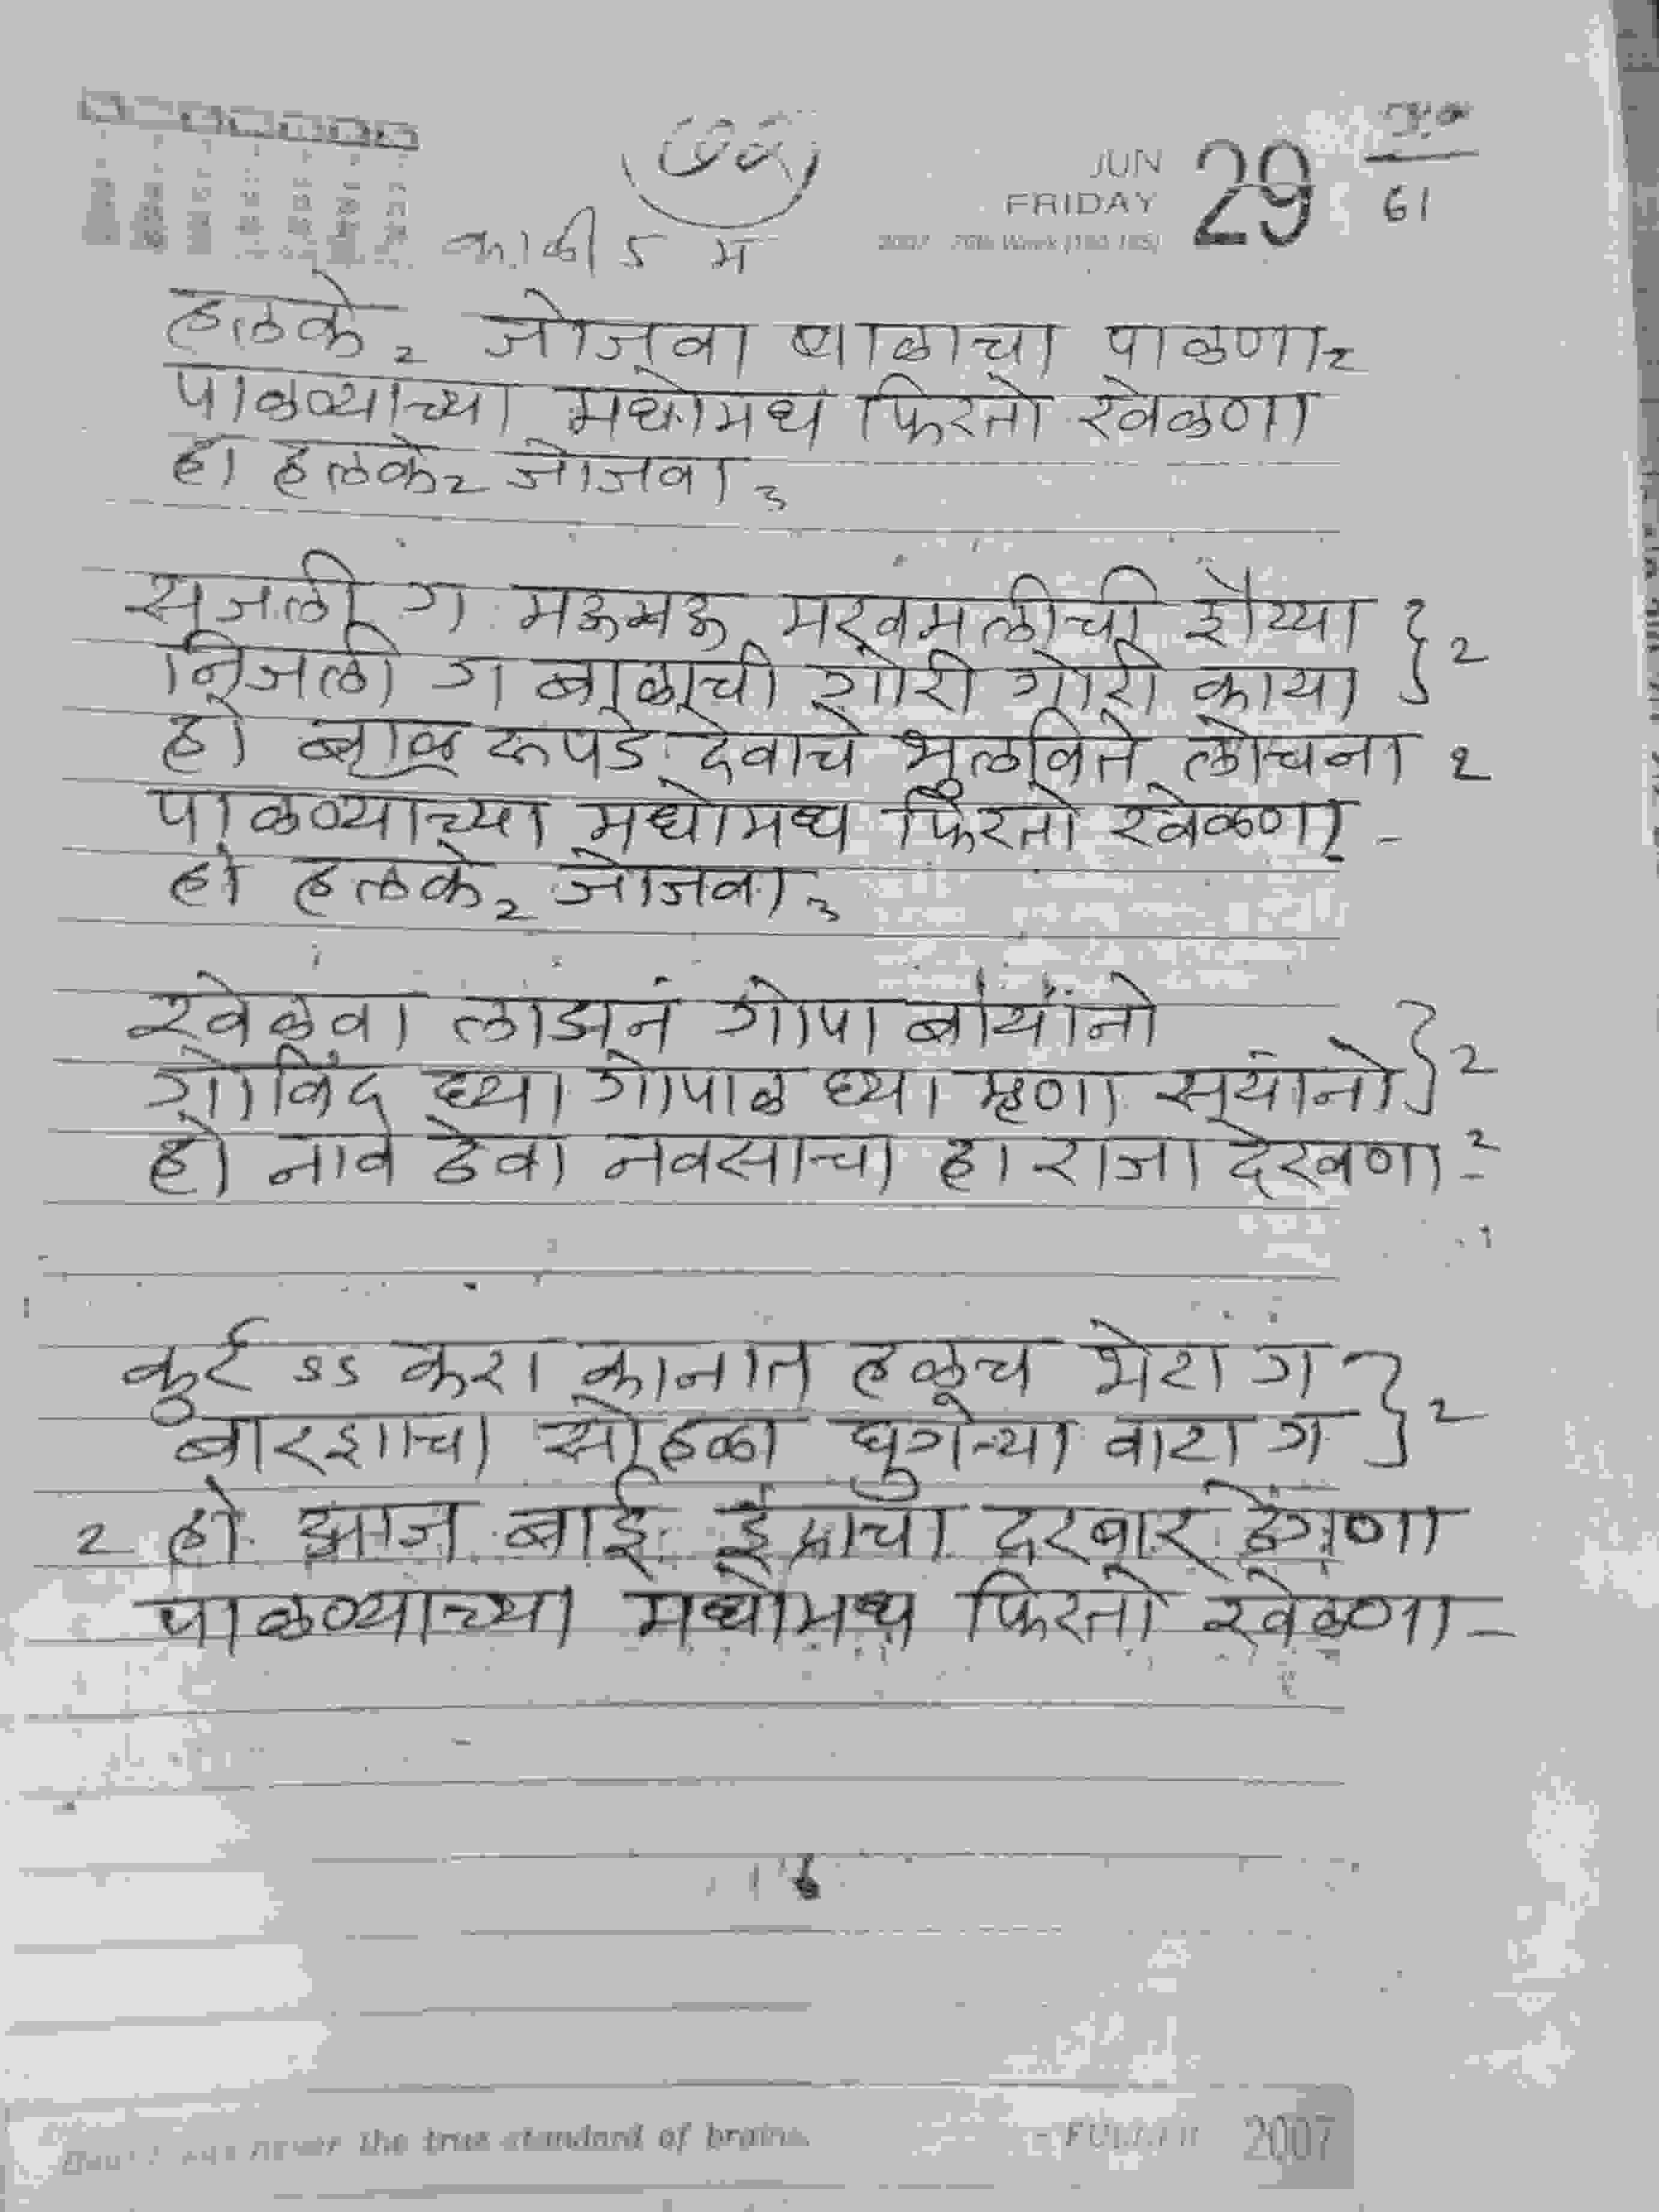 JUN
FRIDAY 29
61
काळी ५ म
हलके २ जोजवा बाळाचा पाळणा २
पाळण्याच्या मधोमध फिरतो खेळणा
हो हलके २ जोजवा ३
सजली ग मऊमऊ मखमलीची शैय्या } २
निजली ग बाळाची गोरी गोरी काया
हो बाळ रूपडे देवाचे भुलविते लोचना २
पाळण्याच्या मधोमध फिरतो खेळणा -
हो हलके २ जोजवा ३
खेळवा लाडानं गोपा बायांनो } २
गोविंद घ्या गोपाळ घ्या म्हणा सयांनो
हो नाव ठेवा नवसाचा हा राजा देखणा - २
कुर्र ऽऽ करा कानात हळूच भेटा ग } २
बारशाचा सोहळा घुगऱ्या वाटा ग
२ हो आज बाई इंद्राचा दरबार ठेंगणा
पाळण्याच्या मधोमध फिरतो खेळणा -
the true standard of brains.
- FULLER 2007